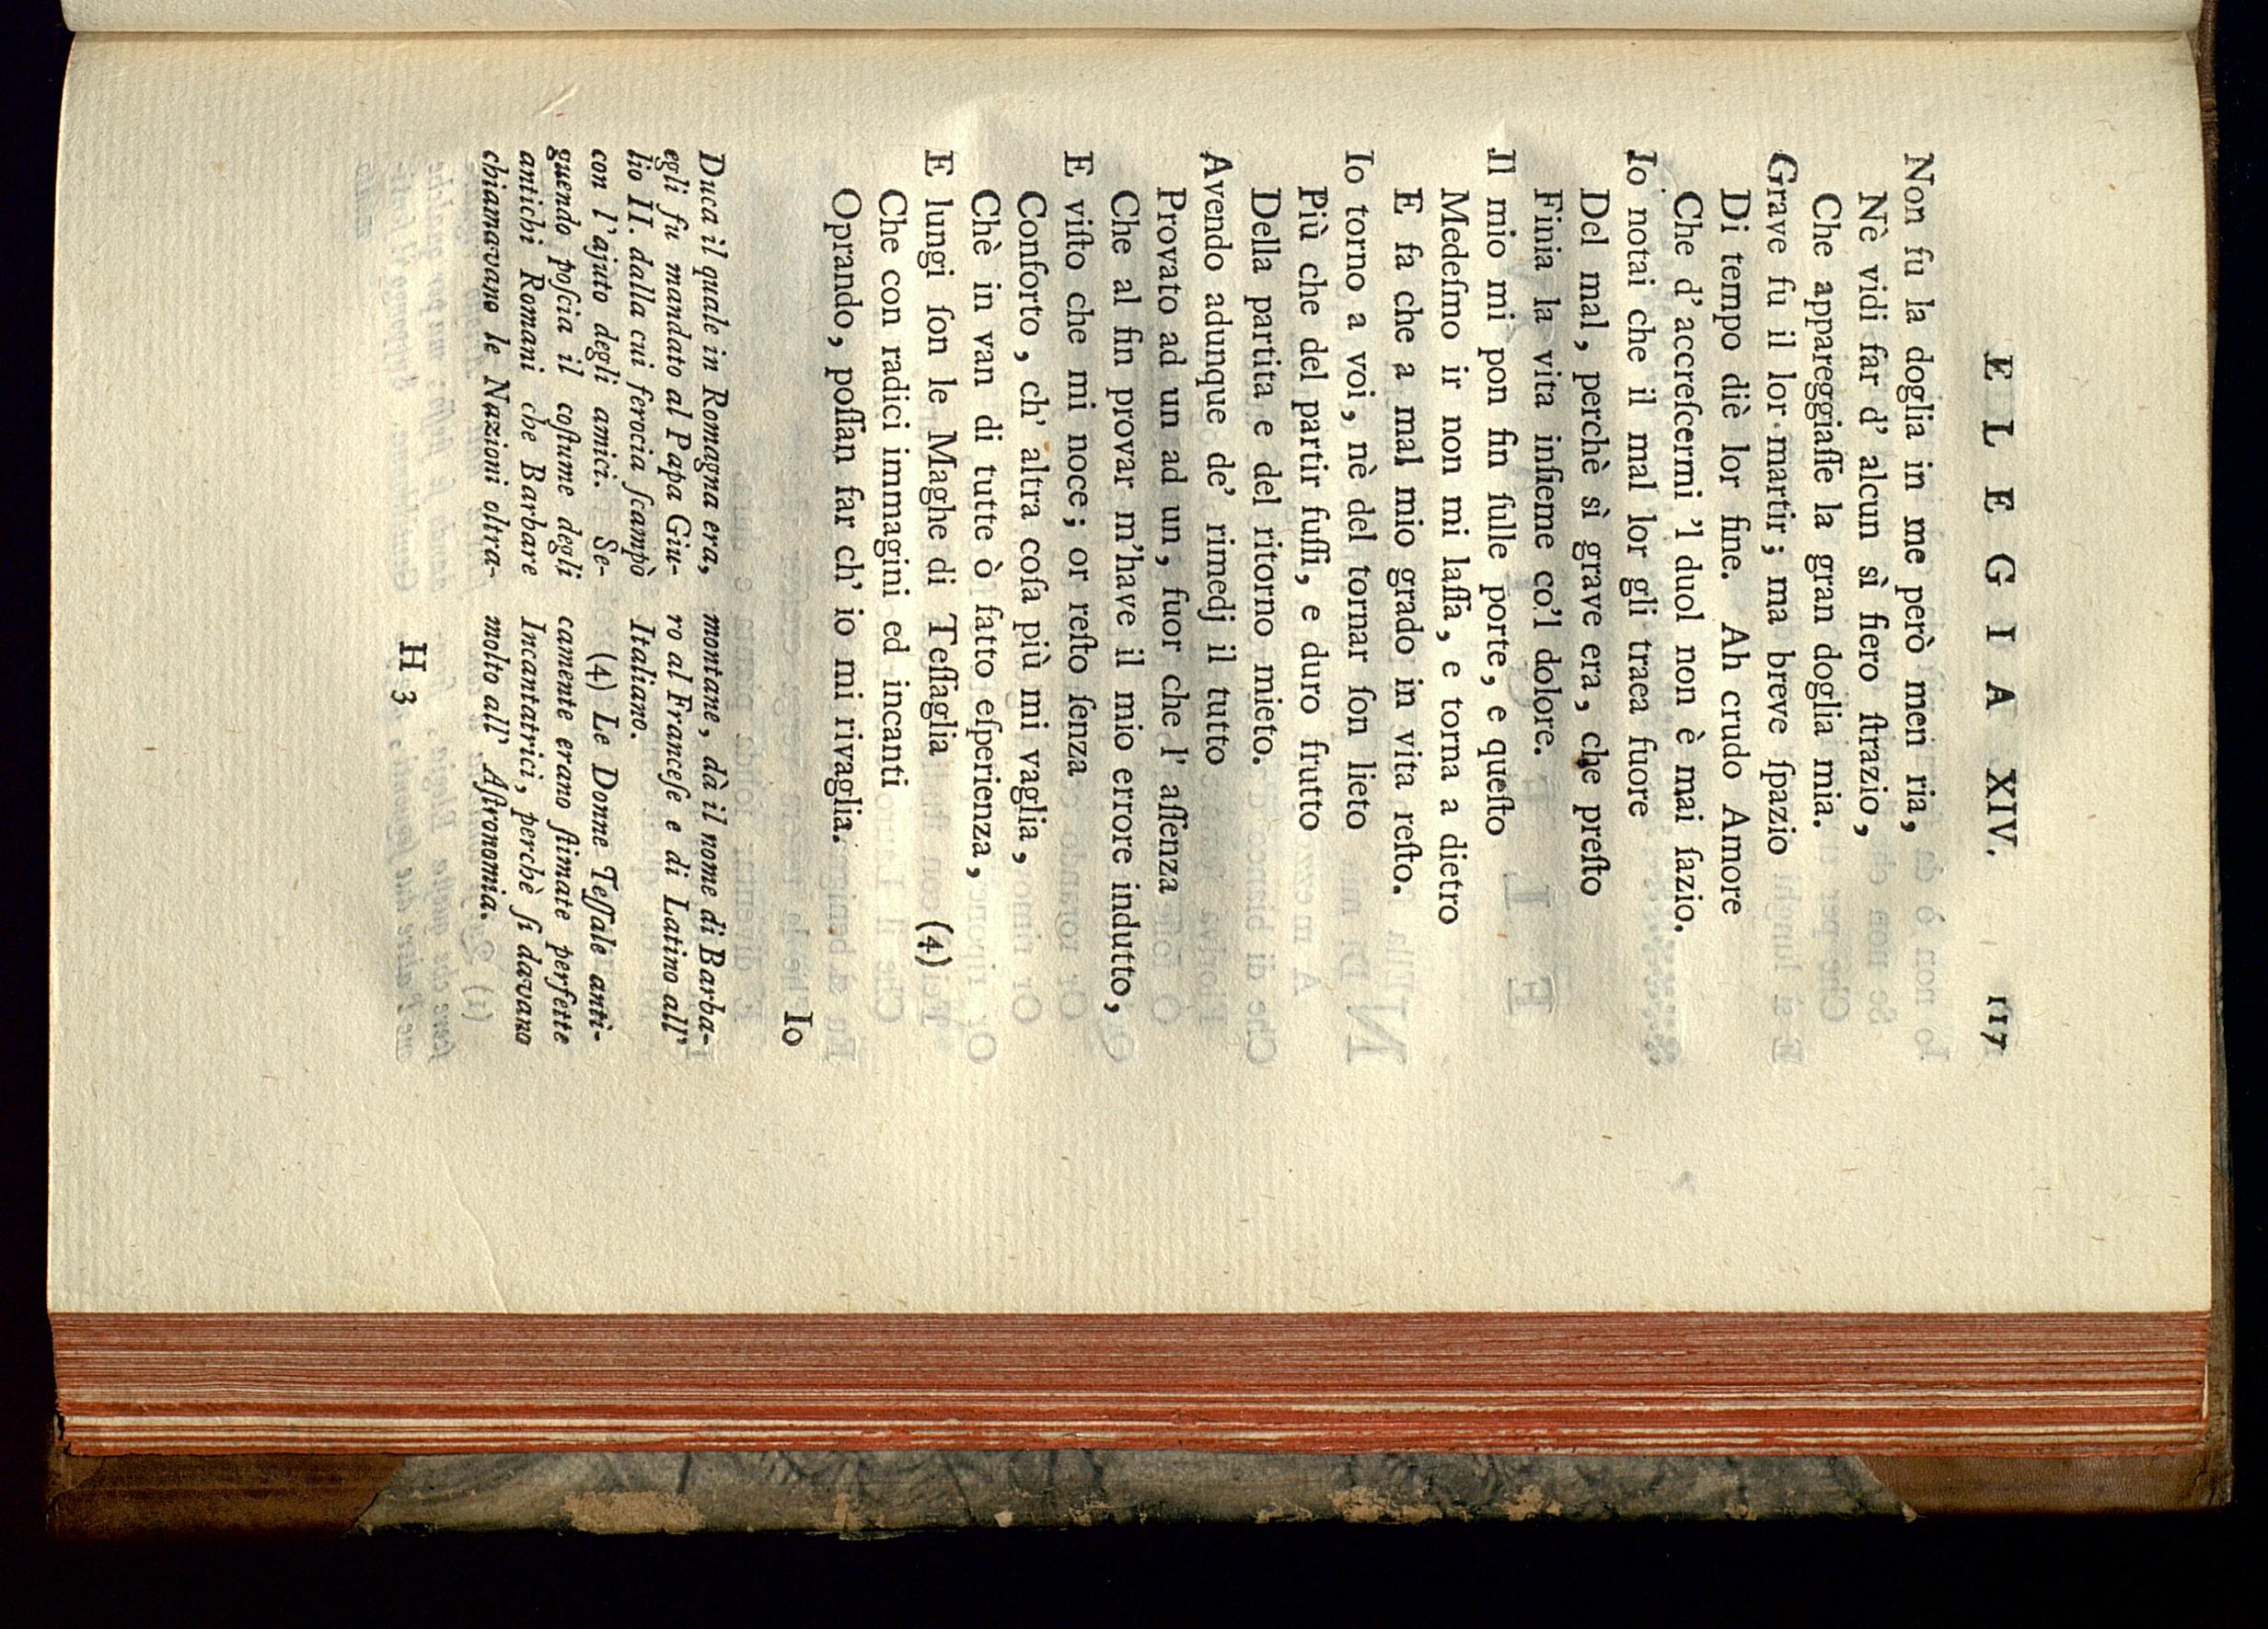 ELEGIA XIV. 117
Non fu la doglia in me però men ria,
Nè vidi far d' alcun sì fiero ſtrazio,
Che appareggiaſſe la gran doglia mia.
Grave fu il lor martir; ma breve ſpazio
Di tempo diè lor fine. Ah crudo Amore
Che d' accreſcermi 'l duol non è mai ſazio.
Io notai che il mal lor gli traea fuore
Del mal, perchè sì grave era, che preſto
Finia la vita inſieme co'l dolore.
Il mio mi pon fin ſulle porte, e queſto
Medeſmo ir non mi laſſa, e torna a dietro
E fa che a mal mio grado in vita reſto.
Io torno a voi, nè del tornar ſon lieto
Più che del partir fuſſi, e duro frutto
Della partita e del ritorno mieto.
Avendo adunque de' rimedj il tutto
Provato ad un ad un, fuor che l' aſſenza
Che al fin provar m'have il mio errore indutto,
E viſto che mi noce; or reſto ſenza
Conforto, ch' altra coſa più mi vaglia,
Chè in van di tutte ò fatto eſperienza,
E lungi ſon le Maghe di Teſſaglia (4)
Che con radici immagini ed incanti
Oprando, poſſan far ch' io mi rivaglia.
Io
Duca il quale in Romagna era,
egli fu mandato al Papa Giu-
lio II. dalla cui ferocia ſcampò
con l'ajuto degli amici. Se-
guendo poſcia il coſtume degli
antichi Romani che Barbare
chiamavano le Nazioni oltra-
montane, dà il nome di Barba-
ro al Franceſe e di Latino all'
Italiano.
(4) Le Donne Teſſale anti-
camente erano ſtimate perfette
Incantatrici, perchè ſi davano
molto all' Aſtronomia.
H 3